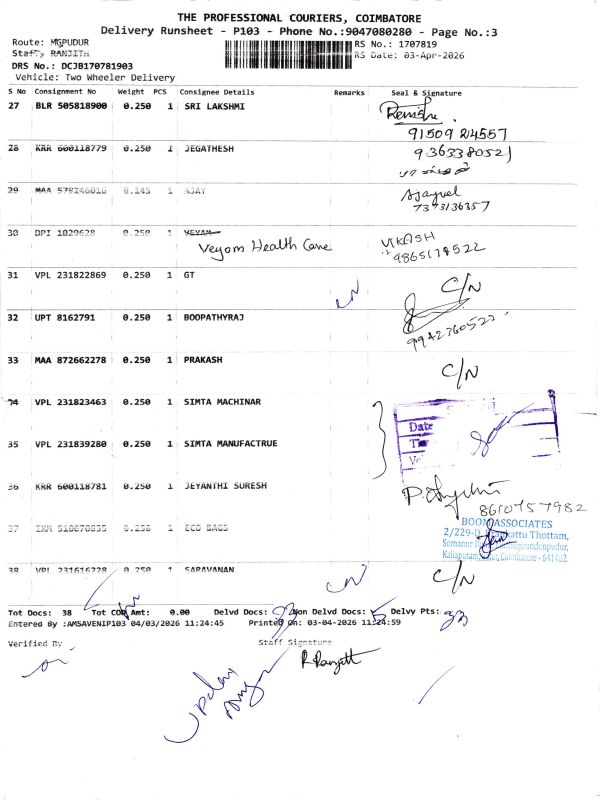 THE PROFESSIONAL COURIERS, COIMBATORE
Delivery Runsheet - P103 - Phone No.:9047080280 - Page No.:3
Route: MGPUDUR RS No.: 1707819
Staff: RANJITH RS Date: 03-Apr-2026
DRS No.: DCJB170781903
Vehicle: Two Wheeler Delivery
S No Consignment No Weight PCS Consignee Details Remarks Seal & Signature
27 BLR 505818900 0.250 1 SRI LAKSHMI
91509 24557
28 KRR 600118779 0.250 1 JEGATHESH 9363380521
29 MAA 578246016 0.145 1 AJAY
7373136357
30 DPI 1029628 0.250 1 VEYAM VIKASH
Veyom Health Care 9865174522
31 VPL 231822869 0.250 1 GT C/N
32 UPT 8162791 0.250 1 BOOPATHYRAJ
9942360522
33 MAA 872662278 0.250 1 PRAKASH C/N
34 VPL 231823463 0.250 1 SIMTA MACHINAR
Date
35 VPL 231839280 0.250 1 SIMTA MANUFACTRUE
36 KRR 600118781 0.250 1 JEYANTHI SURESH
8610757982
37 IXM 510070835 0.250 1 ECO BAGS
BOOM ASSOCIATES
Thottam,
Coimbatore - 641402.
38 VPL 231616728 0.250 1 SARAVANAN C/N
Tot Docs: 38 Tot COD Amt: 0.00 Delvd Docs: 33 Non Delvd Docs: 5 Delvy Pts: 33
Entered By :AMSAVENIP103 04/03/2026 11:24:45 Printed On: 03-04-2026 11:24:59
Verified By Staff Signature
R. Ranjith